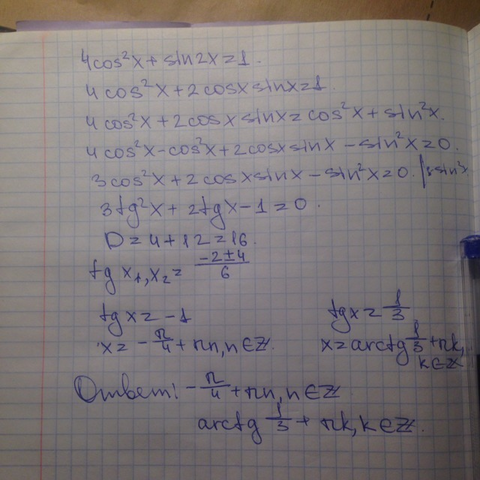 4cos²x + sin2x = 1.
4cos²x + 2cosx sinx = 1.
4cos²x + 2cosx sinx = cos²x + sin²x.
4cos²x - cos²x + 2cosx sinx - sin²x = 0.
3cos²x + 2cosx sinx - sin²x = 0. |: sin²x
3tg²x + 2tgx - 1 = 0.
D = 4 + 12 = 16.
tg x₁, x₂ = (-2 ± 4)/6
tgx = -1 tgx = 1/3
x = -π/4 + πn, n ∈ Z. x = arctg 1/3 + πk, k ∈ Z
Ответ: -π/4 + πn, n ∈ Z
arctg 1/3 + πk, k ∈ Z.